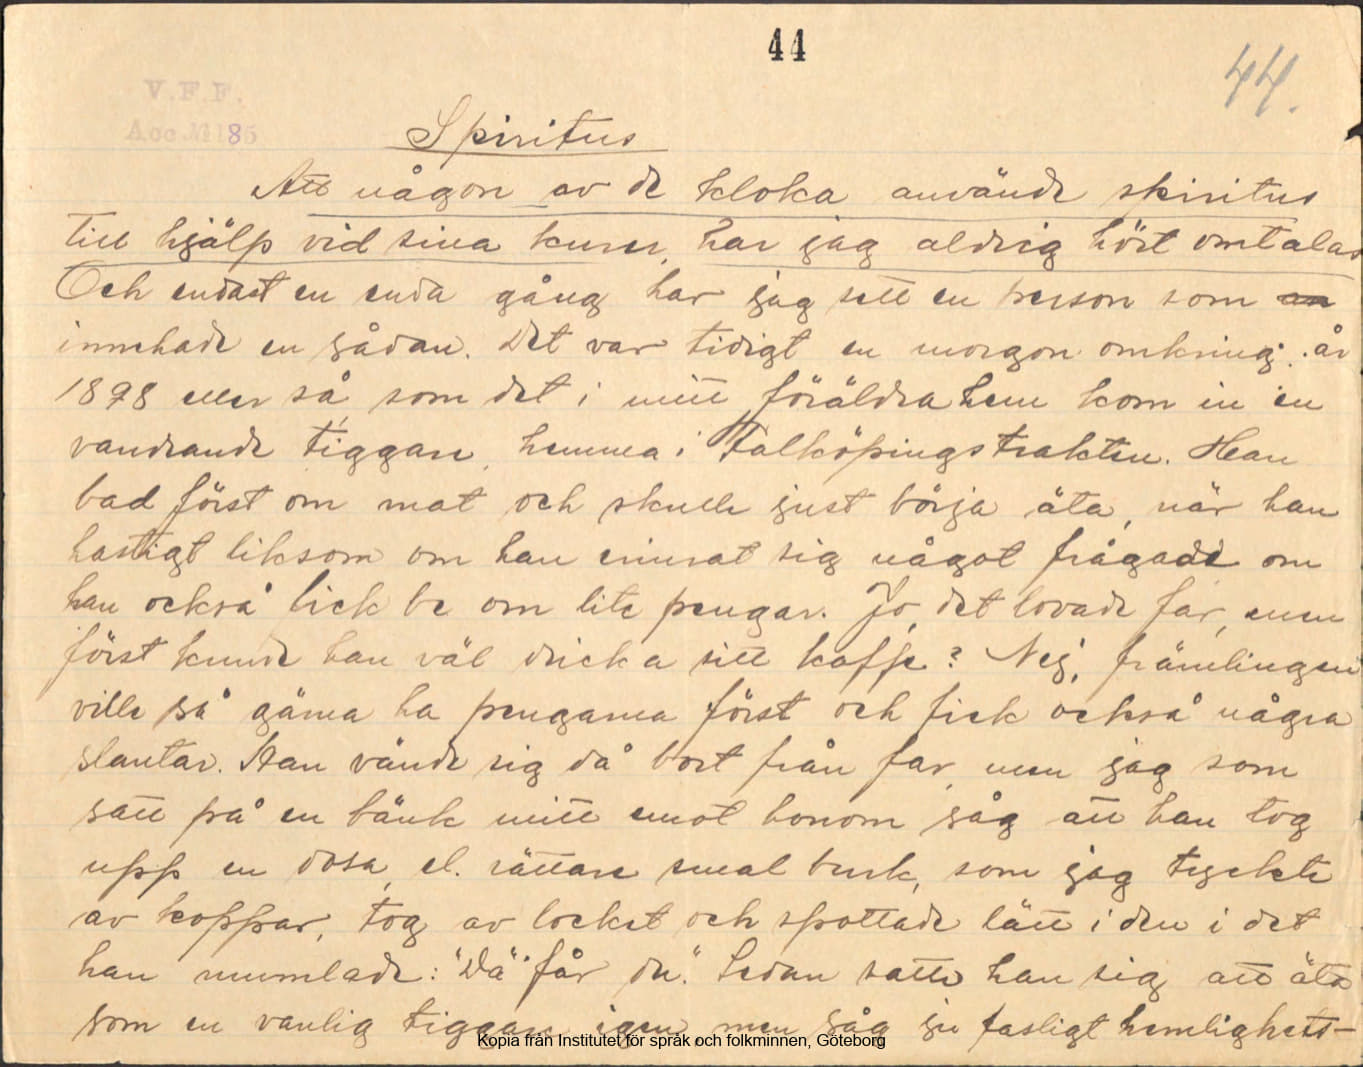 44
44.
V.F.F.
Acc.№185
Spiritus
Att någon av de kloka använde spiritus
till hjälp vid sina kurer, har jag aldrig hört omtalas
Och endast en enda gång har jag sett en person som
innehade en sådan. Det var tidigt en morgon omkring år
1898 eller så, som det i mitt föräldrahem kom in en
vandrande tiggare, hemma i Falköpingstrakten. Han
bad först om mat och skulle just börja äta, när han
hastigt liksom om han erinrat sig något frågade om
han också fick be om lite pengar. Jo, det lovade far, men
först kunde han väl dricka sitt kaffe? Nej, främlingen
ville så gärna ha pengarna först och fick också några
slantar. Han vände sig då bort från far, men jag som
satt på en bänk mitt emot honom såg att han tog
upp en dosa, el. rättare smal burk, som jag tyckte
av koppar, tog av locket och spottade lätt i den i det
han mumlade: "Dä får du". Sedan satte han sig att äta
som en vanlig tiggare igen, men såg ju fasligt hemlighets-
Kopia från Institutet för språk och folkminnen, Göteborg